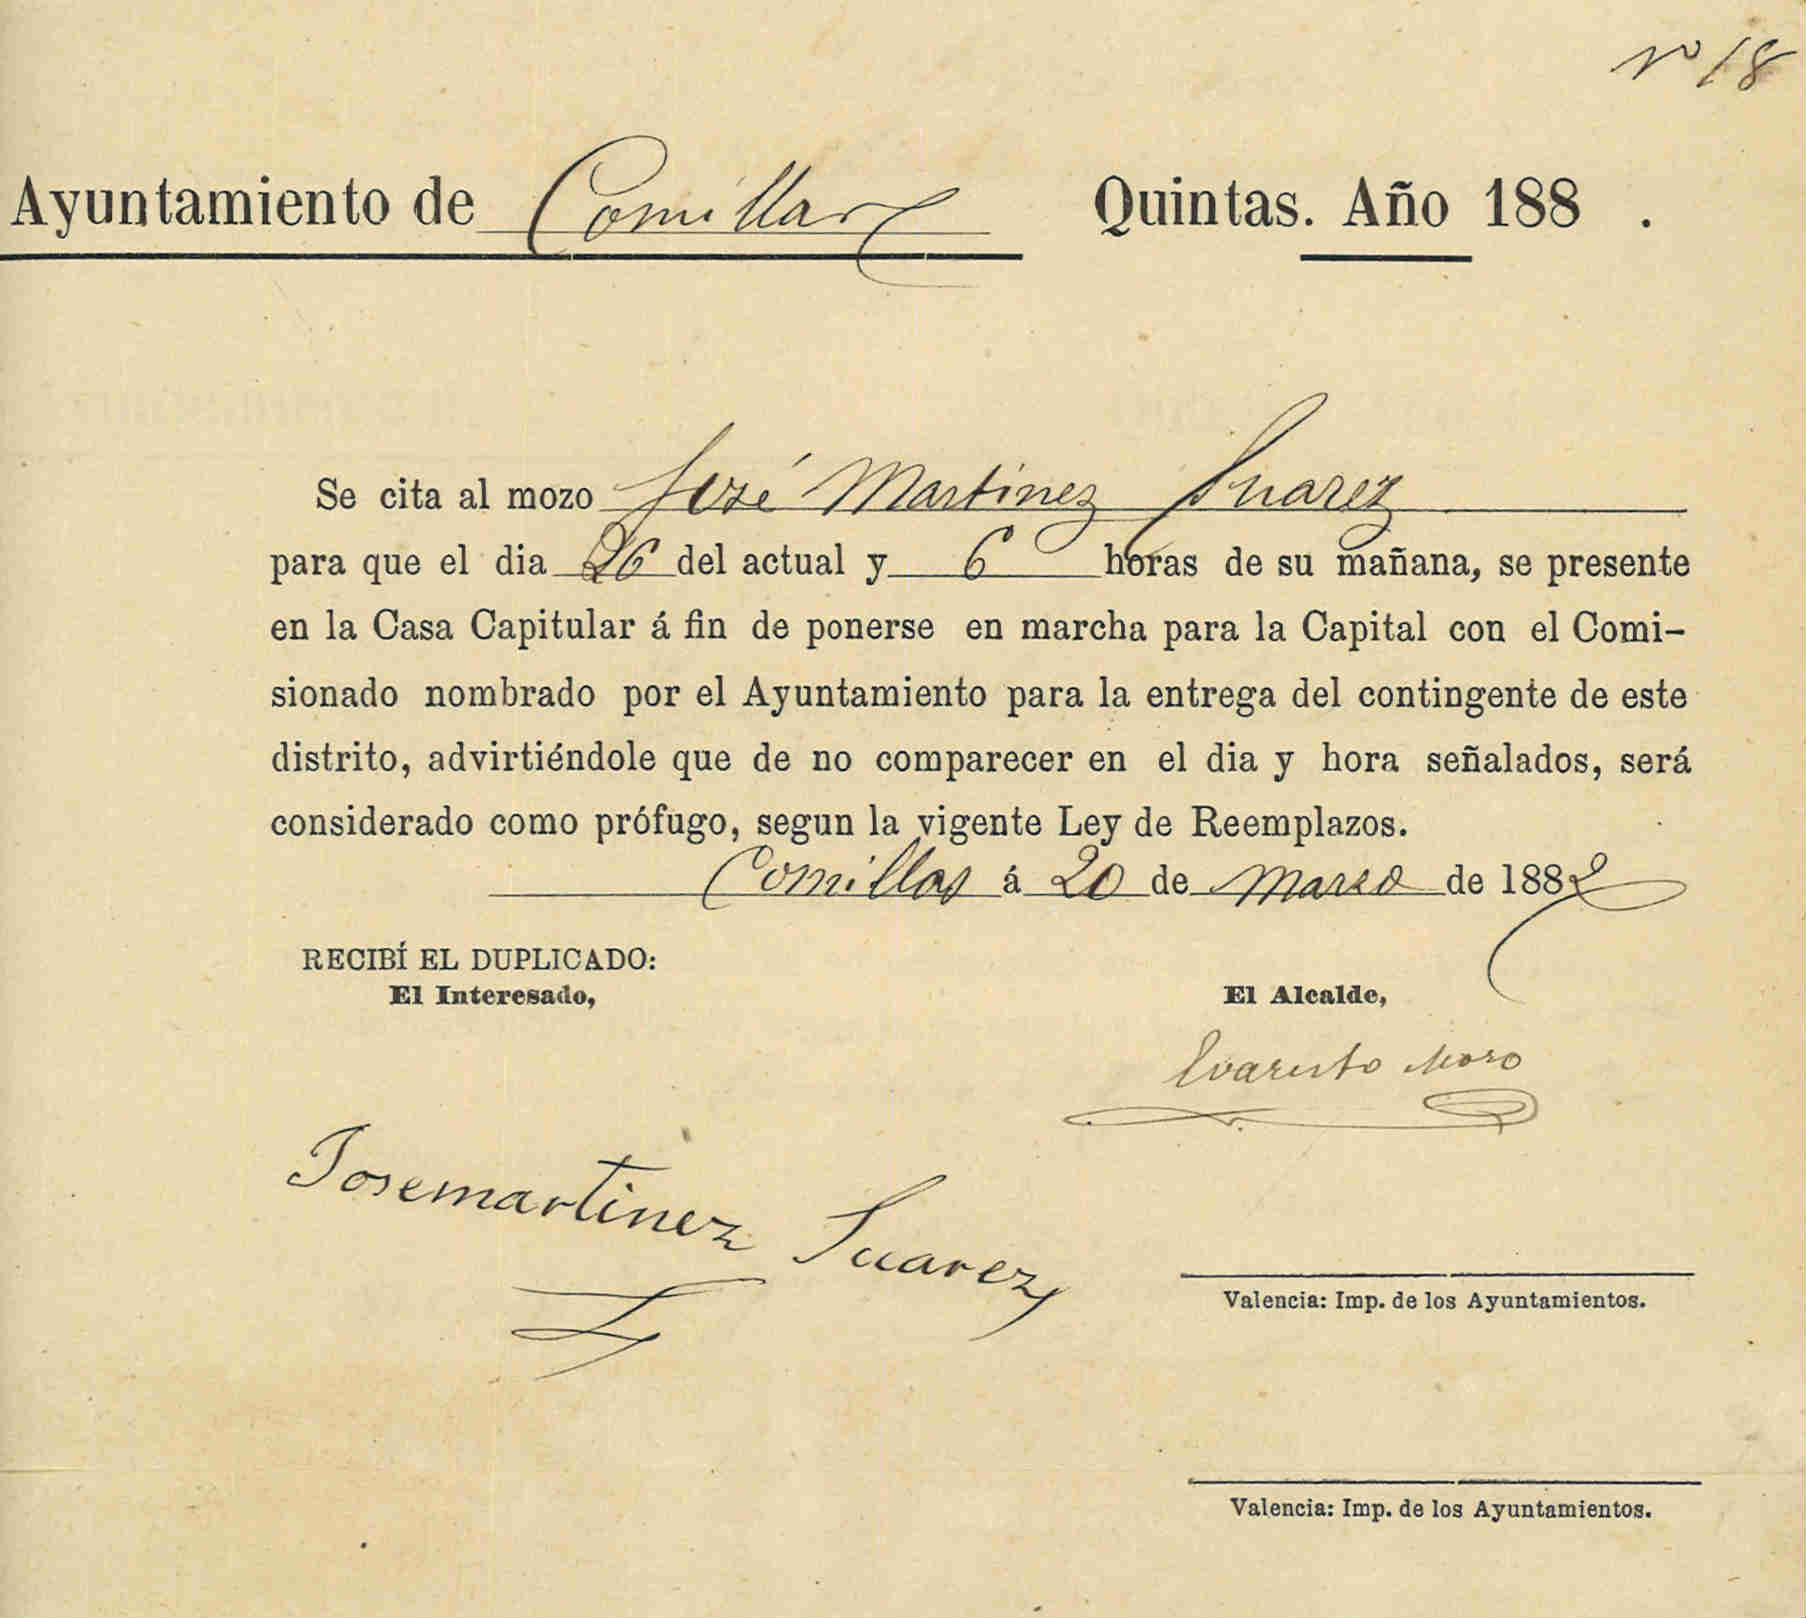 Nº 18
Ayuntamiento de Comillas Quintas. Año 188 .
Se cita al mozo José Martinez Suarez
para que el dia 26 del actual y 6 horas de su mañana, se presente
en la Casa Capitular á fin de ponerse en marcha para la Capital con el Comi-
sionado nombrado por el Ayuntamiento para la entrega del contingente de este
distrito, advirtiéndole que de no comparecer en el dia y hora señalados, será
considerado como prófugo, segun la vigente Ley de Reemplazos.
Comillas á 20 de Marzo de 1882
RECIBÍ EL DUPLICADO:
El Interesado,
El Alcalde,
Evaristo Moro
Josemartinez Suarez
Valencia: Imp. de los Ayuntamientos.
Valencia: Imp. de los Ayuntamientos.